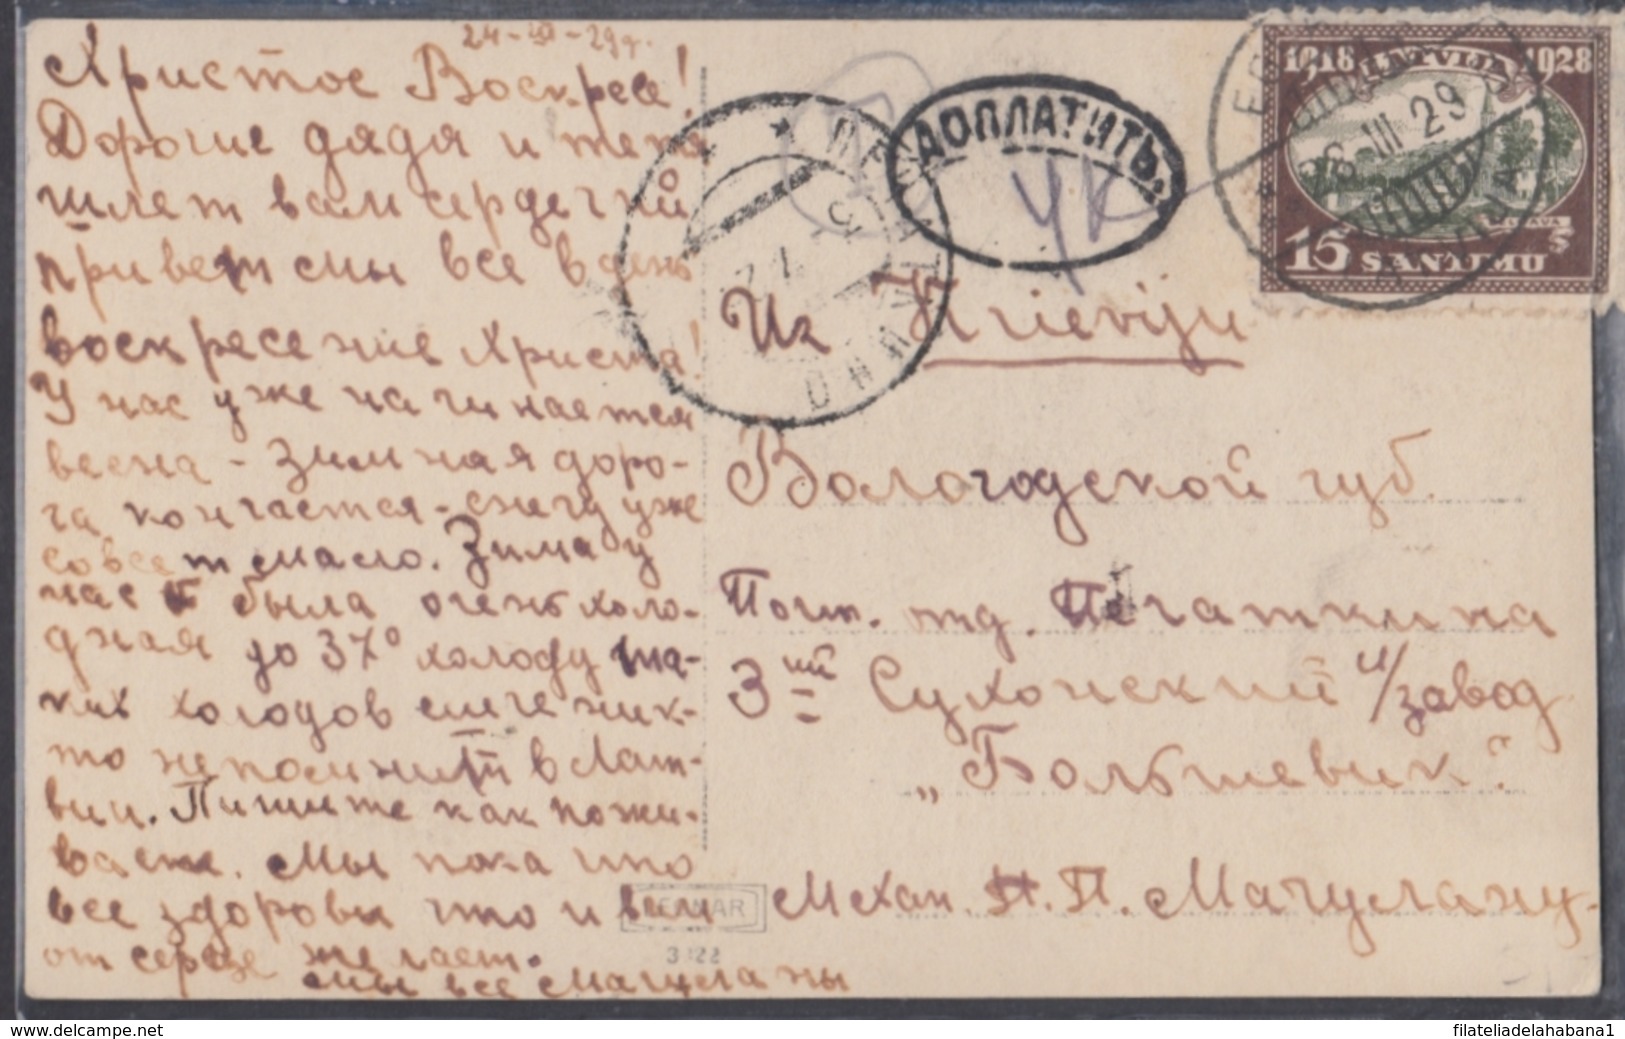 24-III-29 г.
Христос Воскресе!
Дорогие дядя и тетя
шлем вам сердечний
привет мы все в день
воскресение Христа!
У нас уже начинается
весна - зимная доро-
га кончается - снегу уже
совсем мало. Зима у
нас была очень холо-
дная до 37° холоду та-
ких холодов еще ник-
то не помнит в Лат-
вии. Пишите как пожи-
ваете. Мы пока что
все здоровы что и вам
от сердце желаем.
мы все Мачуланы
ДОПЛАТИТЬ.
ЧК
1918 LATVIJA 1928
26 III 29
15 SANTIMU
JELGAVA
Uz Krieviju
Вологодской губ.
Почт. отд. Печаткина
3ий Сухонский ц/завод
„Большевик“.
Механ. П. П. Мачулану.
3122
www.delcampe.net
filateliadelahabana1